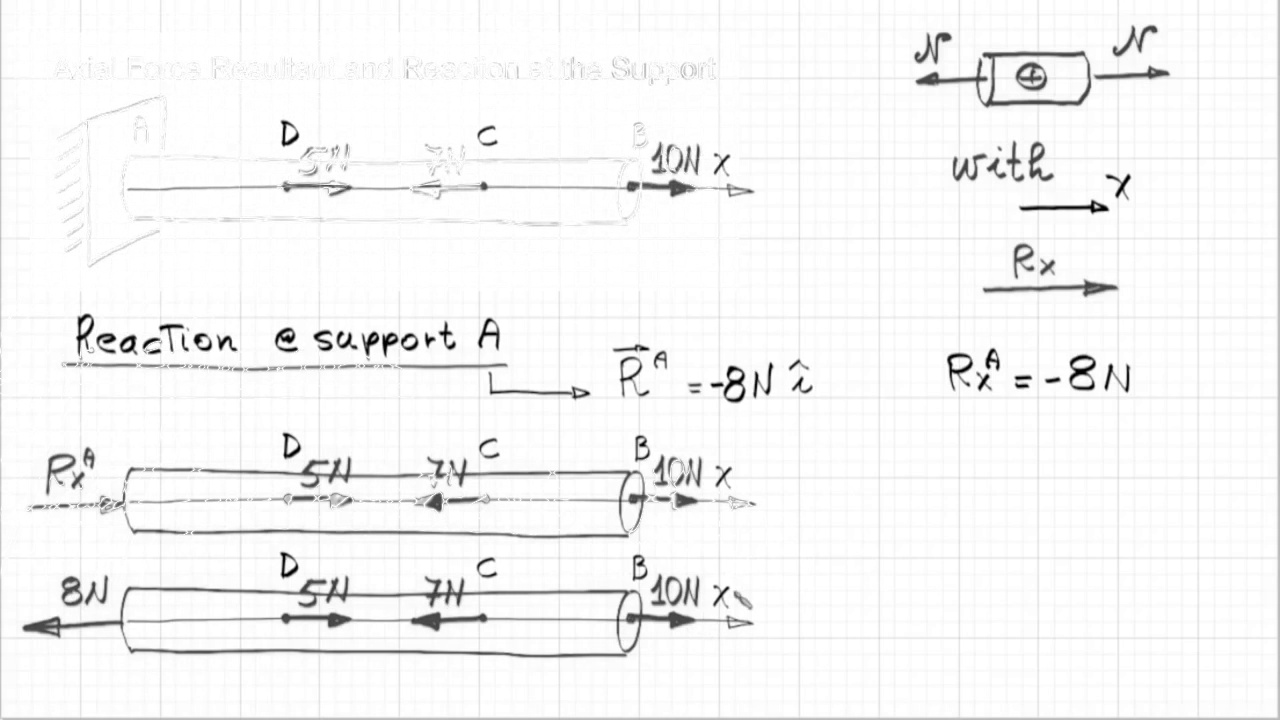 N N
Axial Force Resultant and Reaction at the Support
A D C B
5N 7N 10N x
with
x
Rx
Reaction @ support A
R^A = -8N î
Rx^A = -8N
D C B
Rx^A 5N 7N 10N x
D C B
8N 5N 7N 10N x